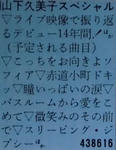 山下久美子スペシャル
▽ライブ映像で振り返
るデビュー14年間！
(予定される曲目)
▽こっちをお向きよソ
フィア▽赤道小町ドキ
ッ▽瞳いっぱいの涙▽
バスルームから愛をこ
めて▽微笑みのその前
で▽スリーピング・ジ
プシーほか
438616